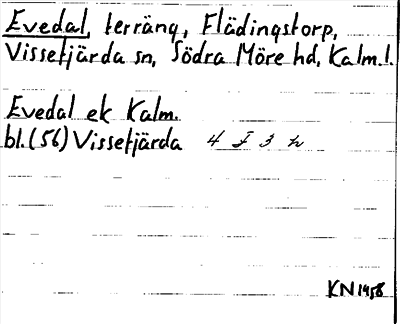 Evedal, terräng, Flädingstorp,
Vissefjärda sn, Södra Möre hd, Kalm.l.
Evedal ek Kalm.
bl.(56) Vissefjärda 4 I 3 h
KN 1958